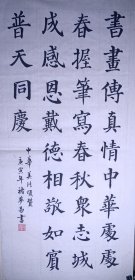 書畫傳真情中華處處
春握筆寫春秋衆志城
成感恩戴德相敬如賓
普天同慶
中華美
庚寅年 書